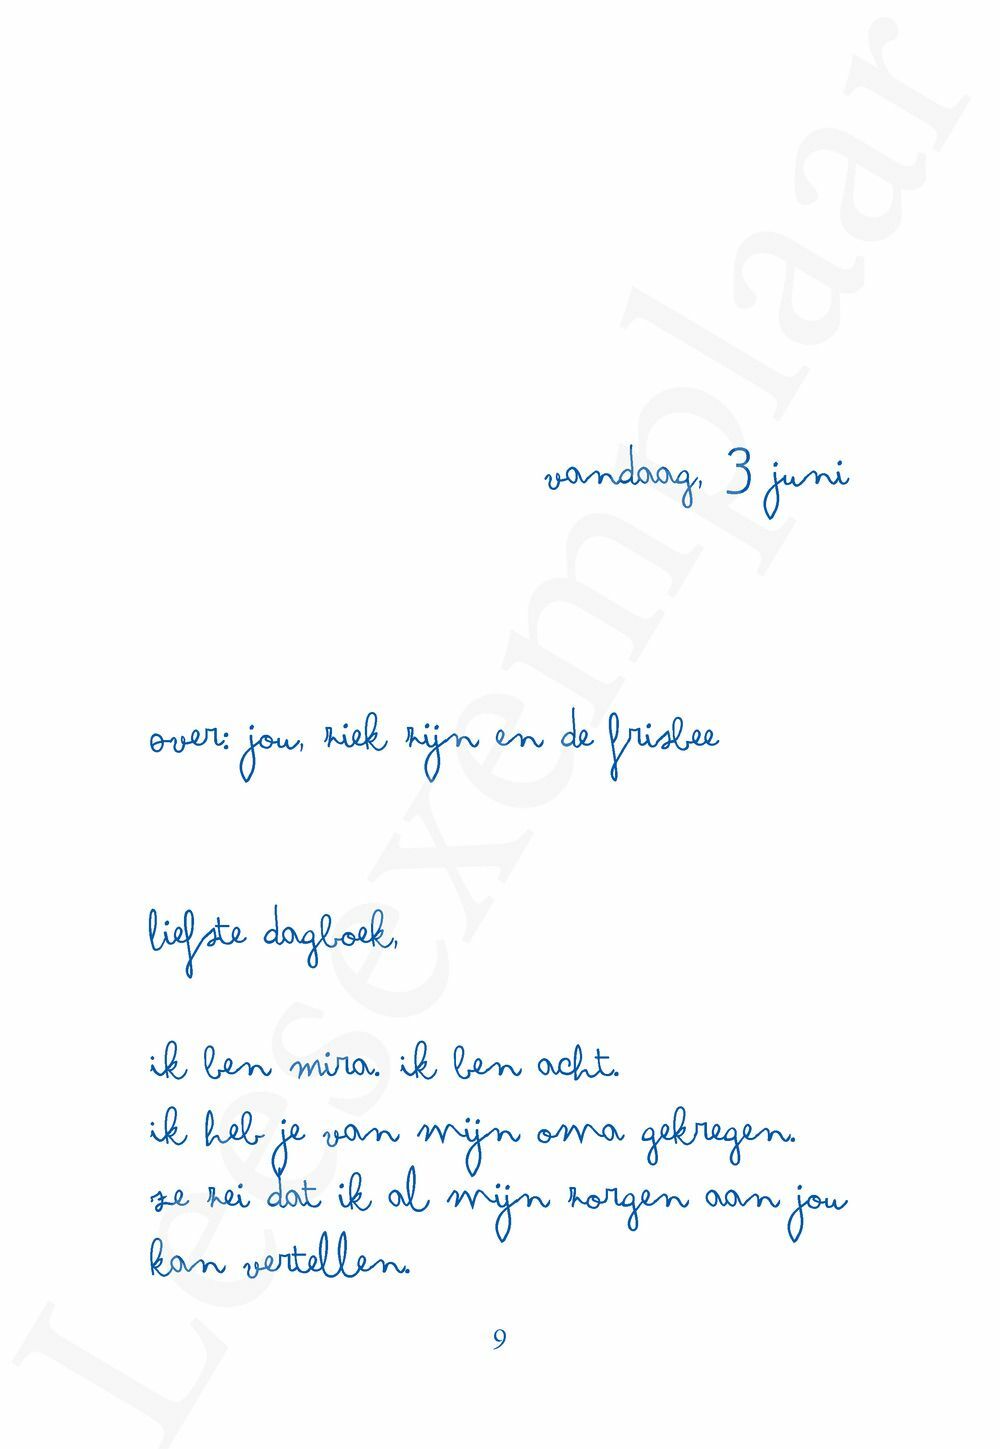 vandaag, 3 juni
over: jou, ziek zijn en de frisbee
liefste dagboek,
ik ben mira. ik ben acht.
ik heb je van mijn oma gekregen.
ze zei dat ik al mijn zorgen aan jou
kan vertellen.
9
Leesexemplaar